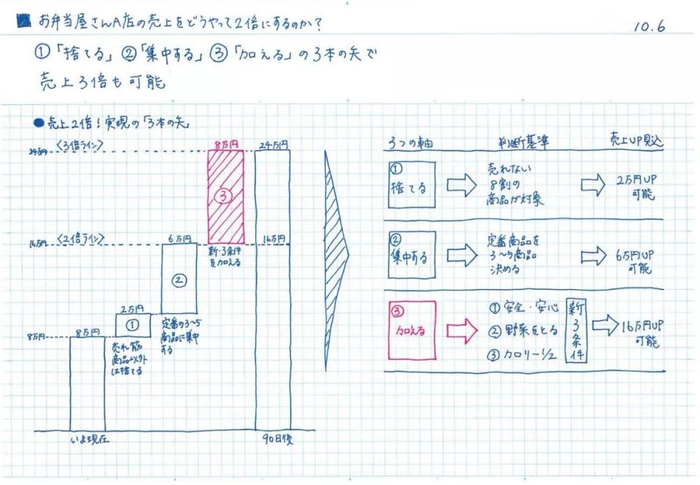 ■ お弁当屋さんA店の売上をどうやって2倍にするのか?
10.6
①「捨てる」②「集中する」③「加える」の3本の矢で
売上3倍も可能
●売上2倍!実現の「3本の矢」
24万
<3倍ライン>
8万円
24万円
③
16万
<2倍ライン>
6万円
16万円
新・3条件
を加える
②
2万円
①
定番の3~5
商品に集中
する
8万
8万円
売れ筋
商品以外
は捨てる
いま現在
90日後
3つの軸
判断基準
売上UP見込
①
捨てる
売れない
8割の
商品が対象
2万円UP
可能
②
集中する
定番商品を
3~5商品
決める
6万円UP
可能
③
加える
①安全・安心
②野菜をとる
③カロリー1/2
新3条件
16万円UP
可能